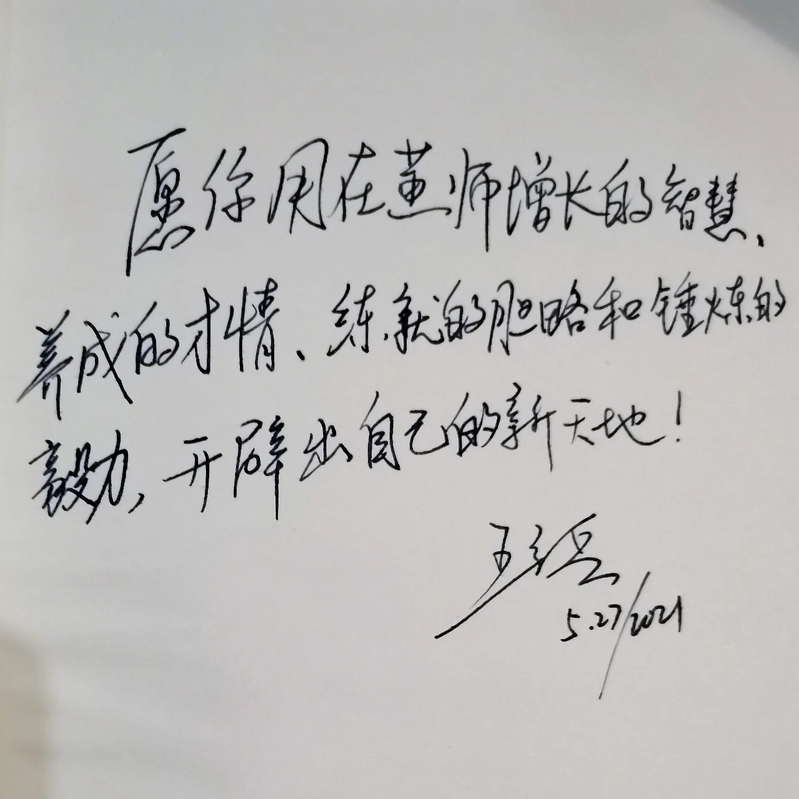 愿你用在燕师增长的智慧、
养成的才情、练就的胆略和锤炼的
毅力,开辟出自己的新天地!
王
5.27/2021